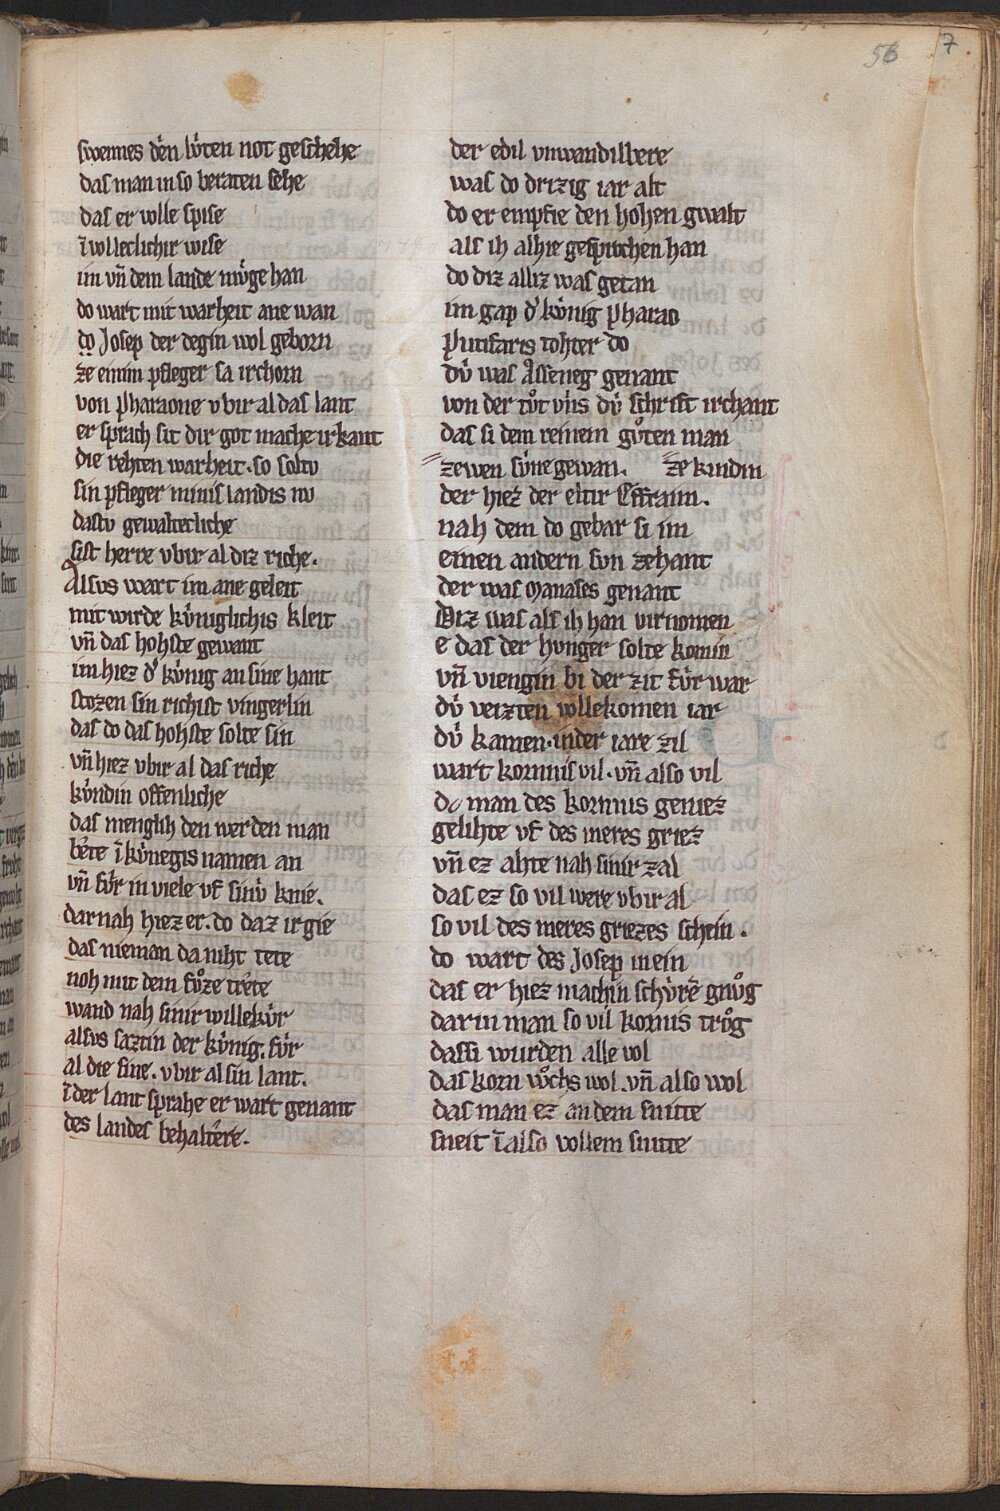 56 7
swennes den lv́ten not geschehe
das man in so beraten sehe
das er volle spise
ī volleclichir wise
im vn̄ dem lande mv́ge han
do wart mit warheit ane wan
do Josep der degin wol geborn
ze einim pfleger sa irchorn
von pharaone vbir al das lant
er sprach sit dir got mache irkant
die rehten warheit · so soltv
sin pfleger minis landis nv
dastv gewaltecliche
sist herre vbir al diz riche ·
Alsvs wart im ane geleit
mit wirde kv́niglichis kleit
vn̄ das hohste gewant
im hiez d᾽ kv́nig an sine hant
stozen sin richist vingerlin
das do das hohste solte sin
vn̄ hiez vbir al das riche
kv́ndin offenliche
das menglih den werden man
bete ī kv́negis namen an
vn̄ fv́r in viele vf sinv́ knie .
darnah hiez er . do daz irgie
das nieman da niht tete
noh mit dem fvͦze trete
wand nah sinir willekv́r
alsvs saztin der kv́nig . fv́r
al die sine . vbir al sin lant .
ī der lant sprahe er wart genant
des landes behaltere .
der edil vnwandilbere
was do drizig iar alt
do er empfie den hohen gwalt
als ih alhie gesprochen han
do diz alliz was getan
im gap d᾽ kv́nig pharao
putifaris tohter do
dv́ was Asseneg genant
von der tvͦt vns dv́ schrift irchant
das si dem reinem gvͦten man
zewen sv́ne gewan . ze kindin
der hiez der eltir Effraim .
nah dem do gebar si im
einen andern svn zehant
der was Manases genant
Diz was als ih han virnomen
e das der hvnger solte komin
vn̄ viengin bi der zit fv́r war
dv́ veizten vollekomen iar
dv́ kamen · in der iare zil
wart kornis vil · vn̄ also vil
do man des kornnis geniez
gelihte vf des meres griez
vn̄ ez ahte nah sinir zal
das ez so vil were vbir al
so vil des meres griezes schein .
do wart des Josep in ein
das er hiez machin schv́rē gnvͦg
dar in man so vil kornis trvͦg
dassi wurden alle vol
das korn wvͦchs wol . vn̄ also wol
das man ez an dem snitte
sneit ī also vollem snitte